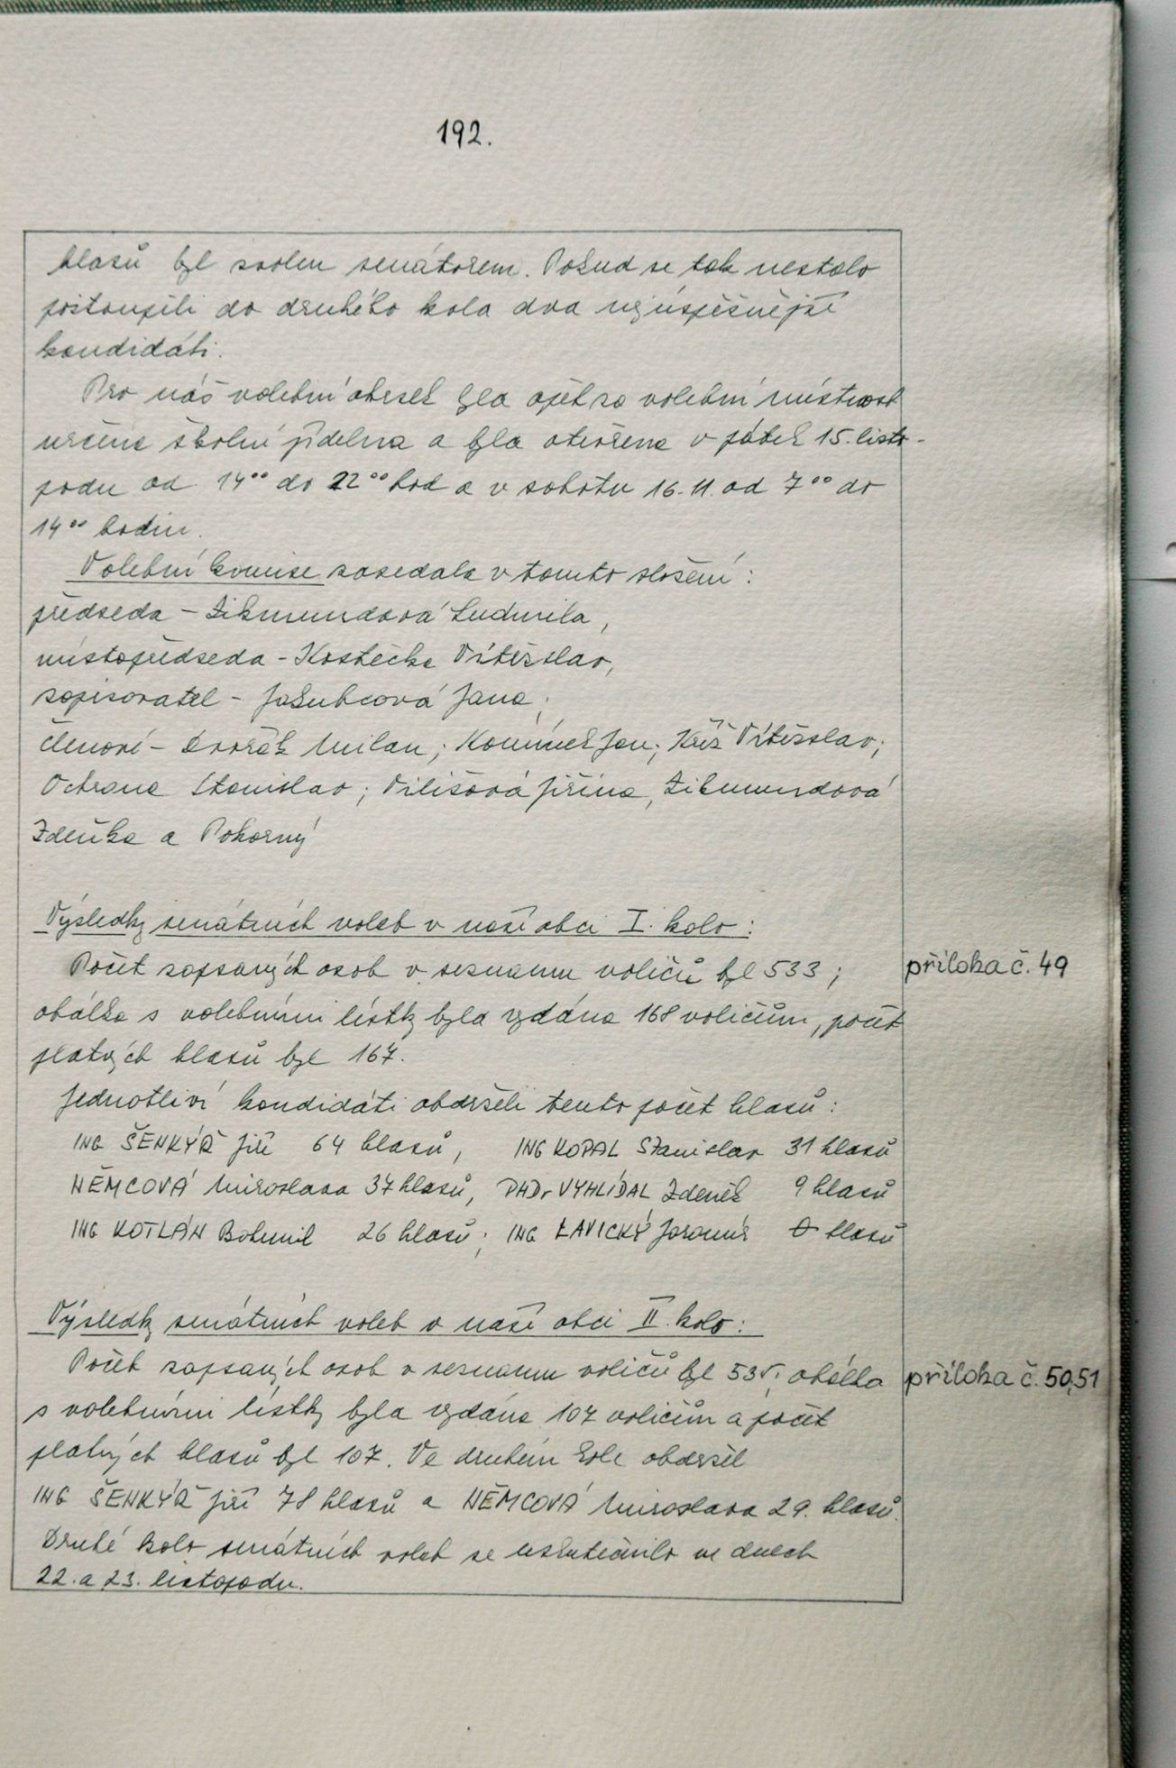 192.
hlasů byl zvolen senátorem. Pokud se tak nestalo
postoupili do druhého kola dva nejúspěšnější
kandidáti.
Pro náš volební okrsek byla opět za volební místnost
určena školní jídelna a byla otevřena v pátek 15. listo-
padu od 14⁰⁰ do 22⁰⁰ hod a v sobotu 16. 11. od 7⁰⁰ do
14⁰⁰ hodin.
Volební komise zasedala v tomto složení:
předseda - Zikmundová Ludmila,
místopředseda - Kostečka Vítězslav,
zapisovatel - Jakubcová Jana,
členové - Dvořák Milan; Komínek Jan; Kříž Vítězslav;
Ochrana Stanislav; Vilišová Jiřina, Zikmundová
Zdeňka a Pokorný
Výsledky senátních voleb v naší obci I. kolo:
Počet zapsaných osob v seznamu voličů byl 533;
příloha č. 49
obálka s volebními lístky byla vydána 168 voličům, počet
platných hlasů byl 167.
Jednotliví kandidáti obdrželi tento počet hlasů:
ING ŠENKÝŘ Jiří 64 hlasů, ING KOPAL Stanislav 31 hlasů
NĚMCOVÁ Miroslava 37 hlasů, PHDr VYHLÍDAL Zdeněk 9 hlasů
ING KOTLÁN Bohumil 26 hlasů; ING LAVICKÝ Jaromír 0 hlasů
Výsledky senátních voleb v naší obci II. kolo:
Počet zapsaných osob v seznamu voličů byl 535; obálka
příloha č. 50,51
s volebními lístky byla vydána 107 voličům a počet
platných hlasů byl 107. Ve druhém kole obdržel
ING ŠENKÝŘ Jiří 78 hlasů a NĚMCOVÁ Miroslava 29. hlasů.
Druhé kolo senátních voleb se uskutečnilo ve dnech
22. a 23. listopadu.